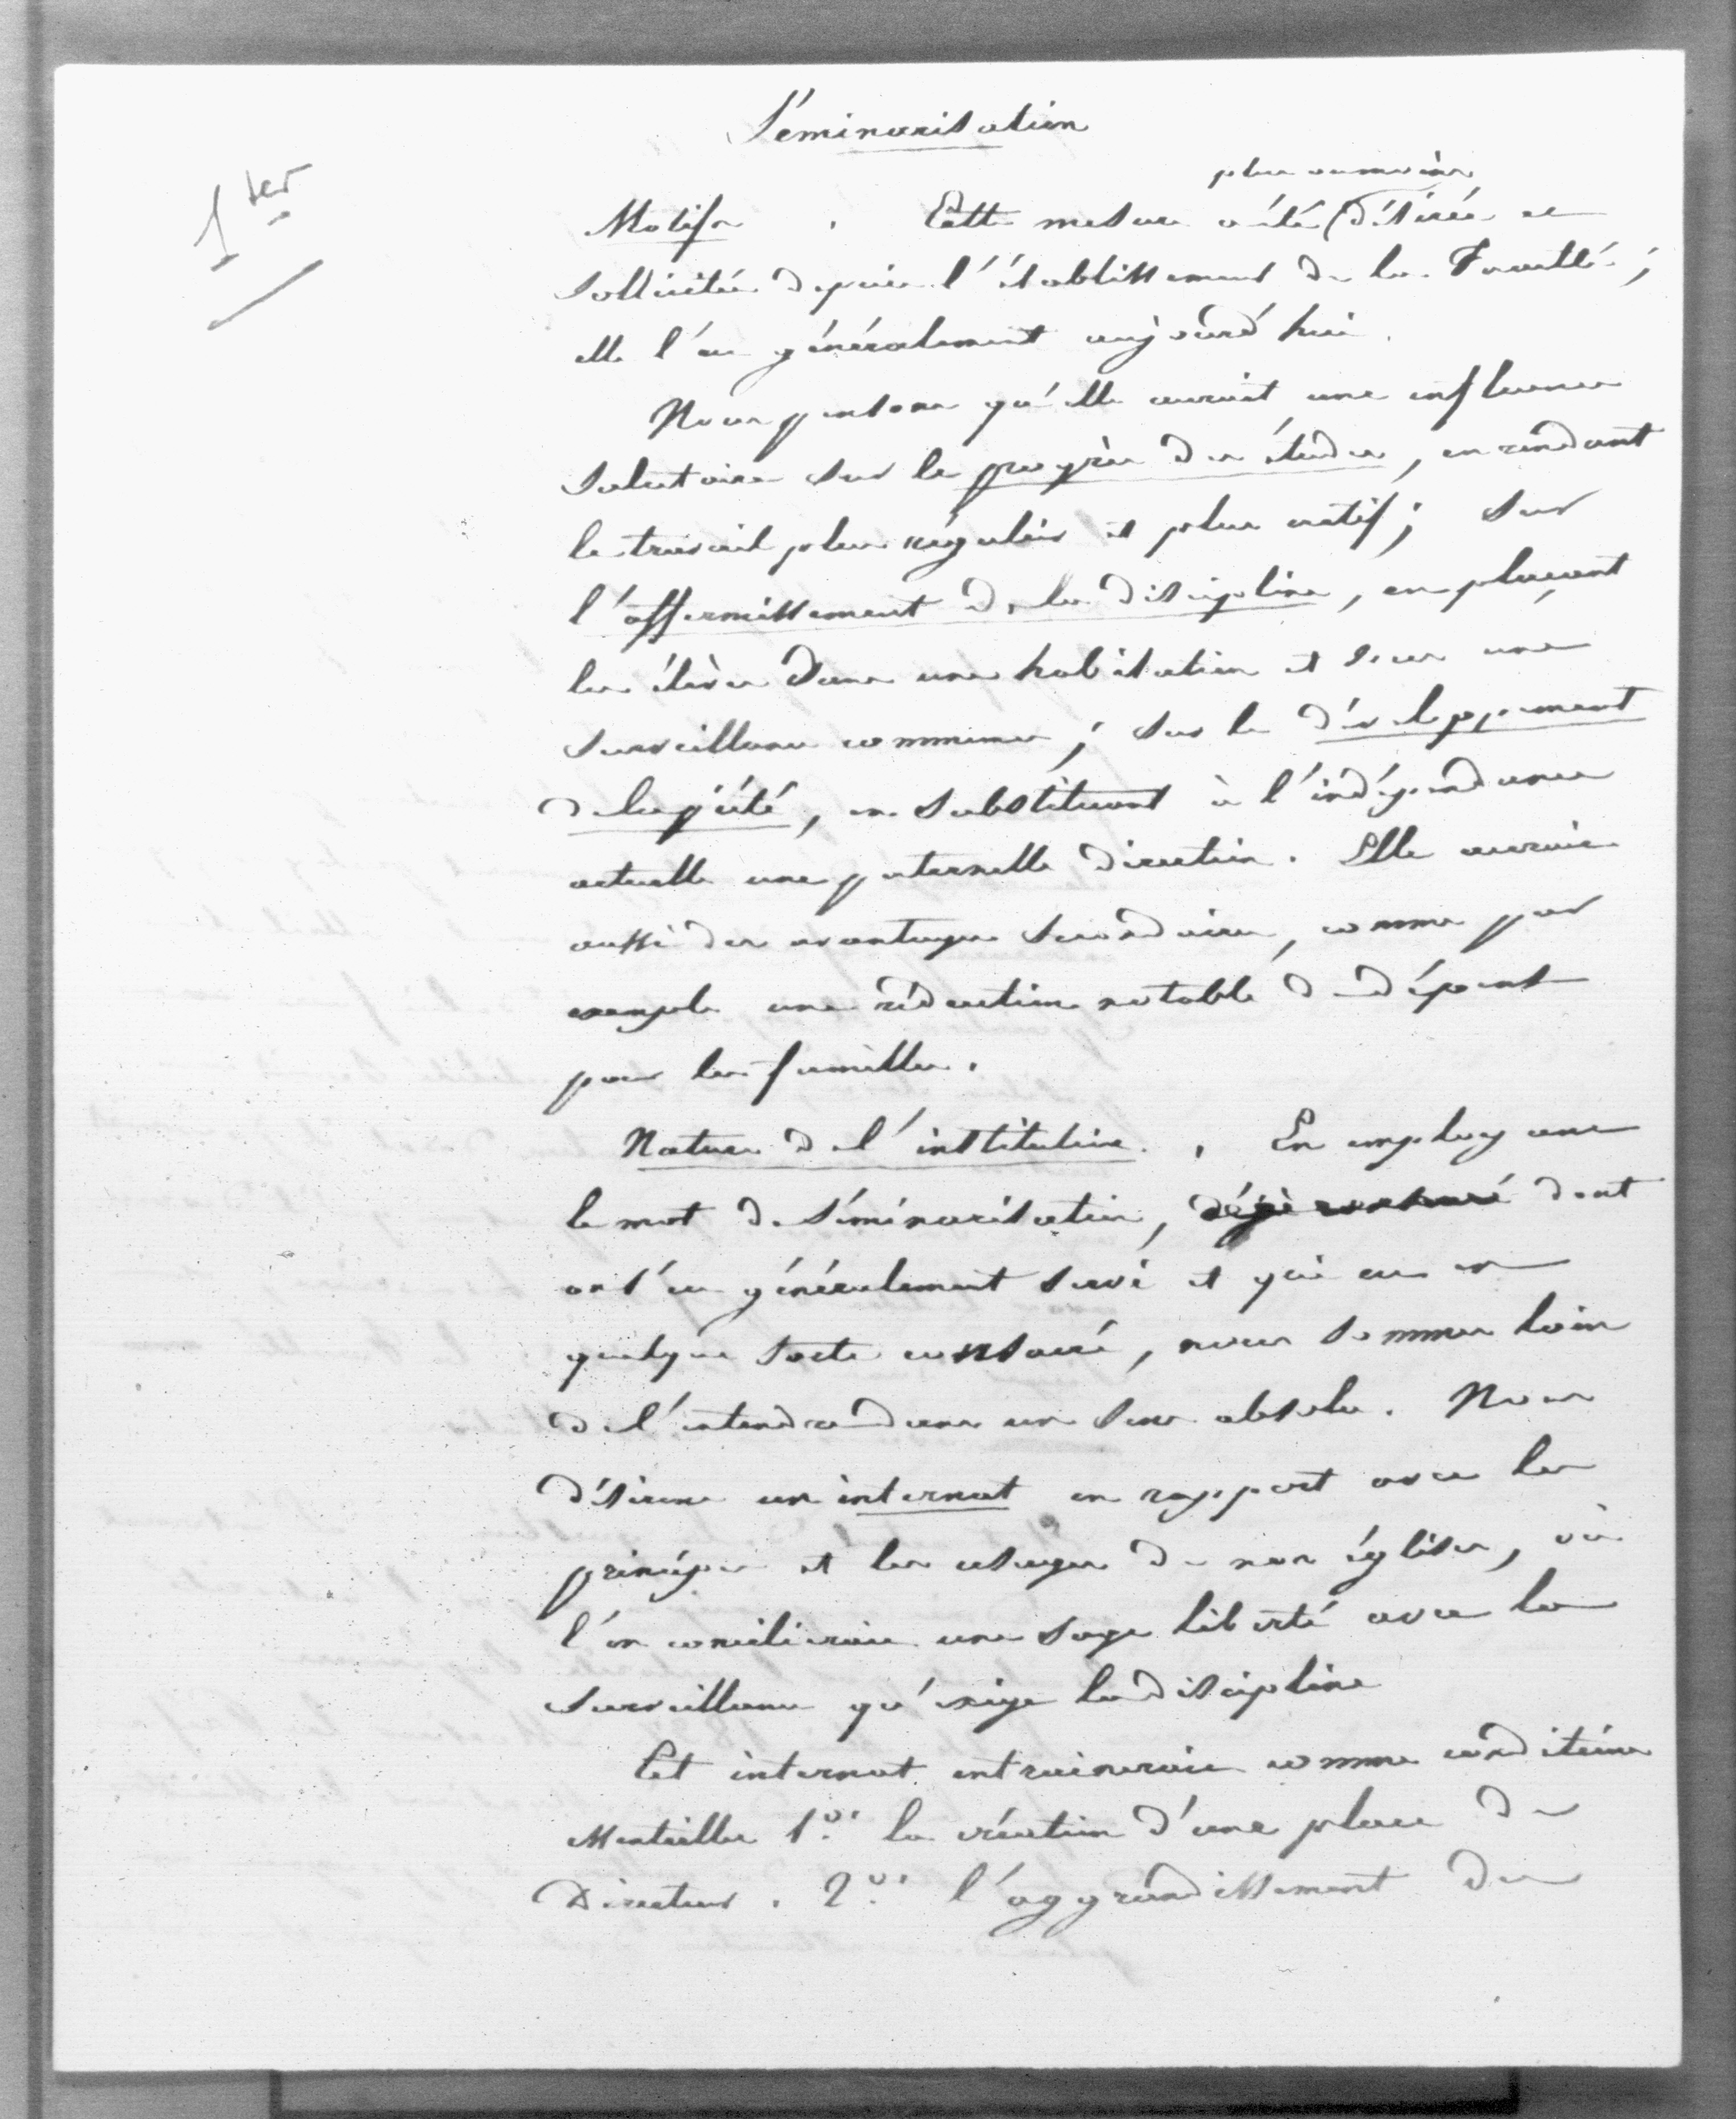 Séminarisation
1er
plusieurs
Motifs. Cette mesure a été désirée et
sollicitée depuis l'établissement de la Faculté;
elle l'est généralement aujourd'hui.
Nous pensons qu'elle aurait une influence
salutaire sur le progrès des études, en rendant
le travail plus régulier et plus actif; sur
l'affermissement de la discipline, en plaçant
les élèves dans une habitation et sous une
surveillance commune; sur le développement
de la piété, en substituant à l'indépendance
actuelle une paternelle direction. Elle aurait
aussi des avantages secondaires, comme par
exemple une réduction notable de dépense
pour les familles.
Nature de l'institution. En employant
le mot de séminarisation, déjà consacré dont
on s'est généralement servi et qui est en
quelque sorte consacré, nous sommes loin
de l'entendre dans un sens absolu. Nous
désirons un internat en rapport avec les
principes et les usages de nos églises, où
l'on concilierait une sage liberté avec la
surveillance qu'exige la discipline
Cet internat entraînerait comme conditions
essentielles 1o. la création d'une place de
Directeur. 2o. l'aggrandissement du